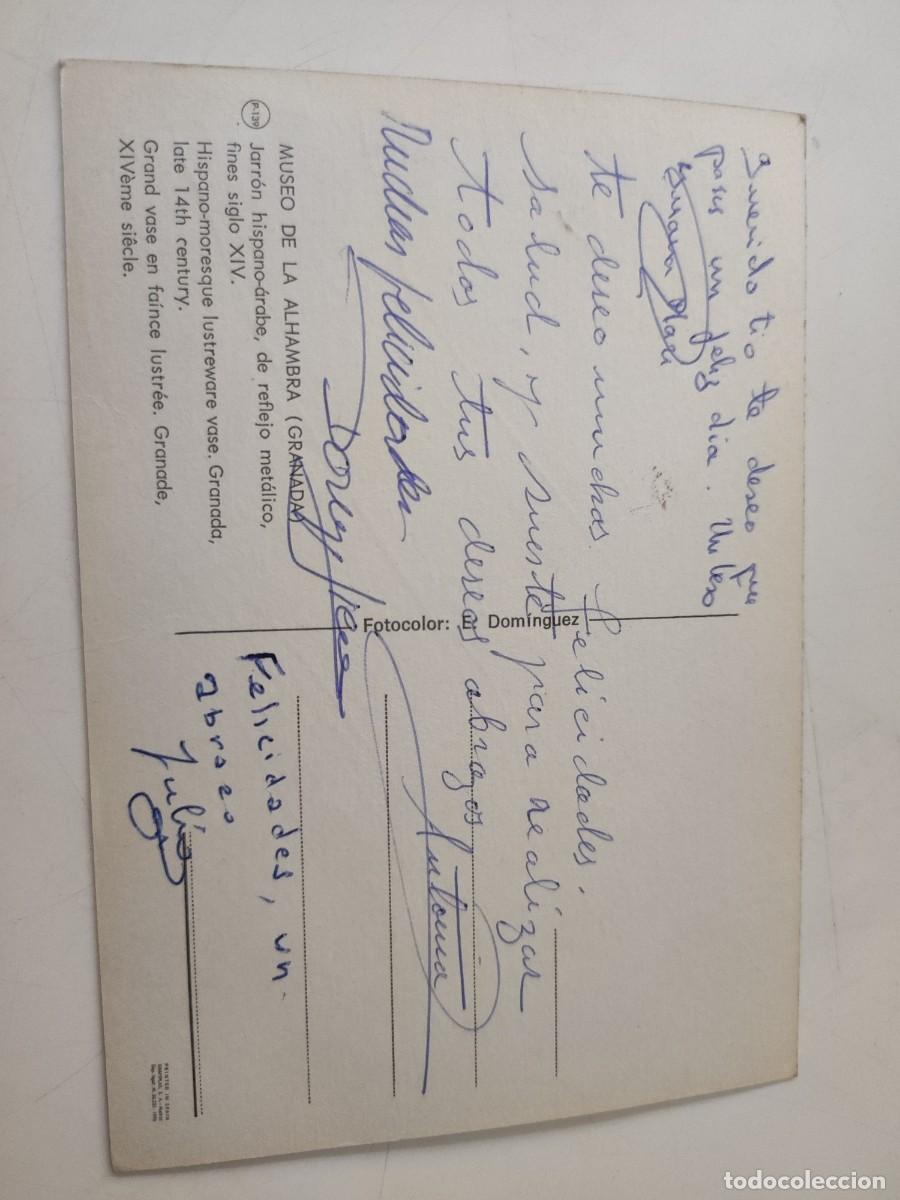 Querido tio te deseo que
pases un feliz dia. Un beso
te deseo muchas felicidades,
salud, y suerte para realizar
todos tus deseos abrazos
Antonia
Muchas felicidades
MUSEO DE LA ALHAMBRA (GRANADA)
P-139
Jarrón hispano-árabe, de reflejo metálico,
fines siglo XIV.
Hispano-moresque lustreware vase. Granada,
late 14th century.
Grand vase en faínce lustrée. Granade,
XIVème siêcle.
Fotocolor: E. Domínguez
Felicidades, un
abrazo
Julio
PRINTED IN SPAIN
todocoleccion